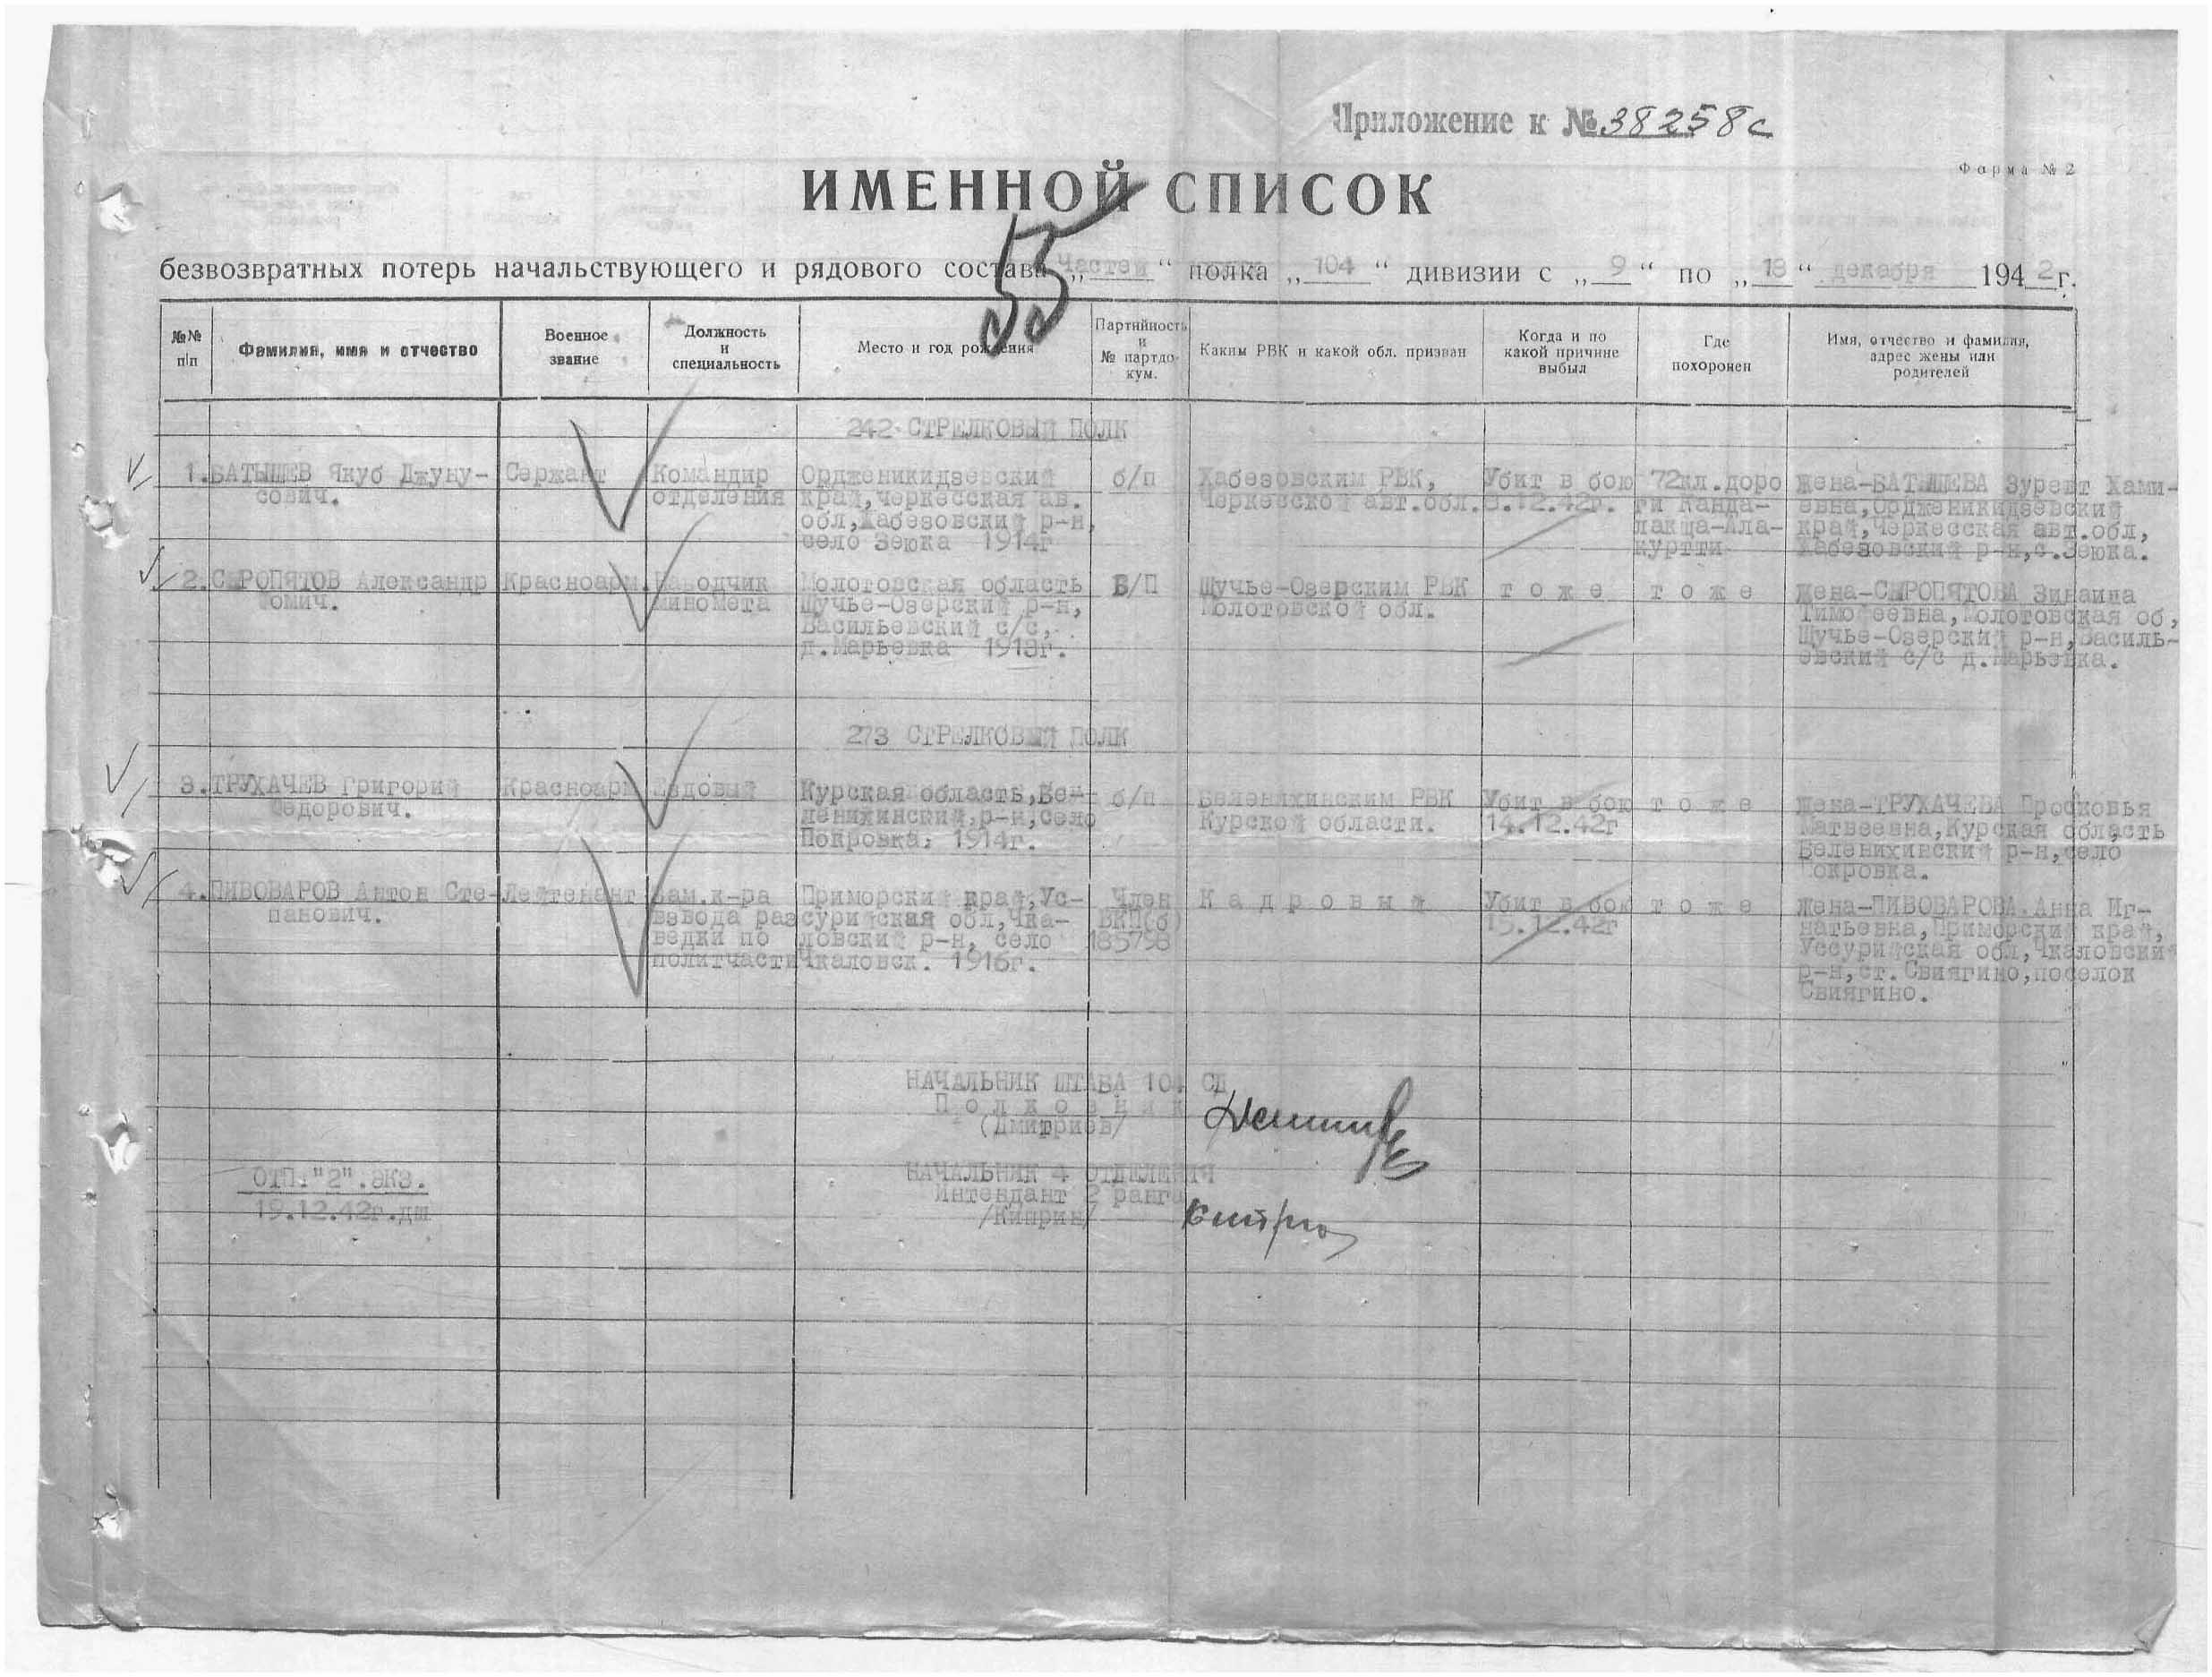 Приложение к № 38258с
Форма № 2
ИМЕННОЙ СПИСОК
55
безвозвратных потерь начальствующего и рядового состава „Частей“ полка „104“ дивизии с „9“ по „19“ декабря 1942г.
№№ п/п
Фамилия, имя и отчество
Военное звание
Должность и специальность
Место и год рождения
Партийность и № партдокум.
Каким РВК и какой обл. призван
Когда и по какой причине выбыл
Где похоронен
Имя, отчество и фамилия, адрес жены или родителей
242 СТРЕЛКОВЫЙ ПОЛК
1. БАТЫШЕВ Якуб Джуну-
сович.
Сержант
Командир
отделения
Орджоникидзевский
край, Черкесская ав.
обл, Хабезовский р-н,
село Зеюка 1914г
б/п
Хабезовским РВК,
Черкесской авт.обл.
Убит в бою
8.12.42г.
72кл.доро
ги Канда-
лакша-Ала-
куртти
жена-БАТЫШЕВА Зурент Хами-
евна, Орджоникидзевский
край, Черкесская авт.обл,
Хабезовский р-н, с.Зеюка.
2. СЫРОПЯТОВ Александр
Фомич.
Красноарм.
Наводчик
миномета
Молотовская область
Щучье-Озерский р-н,
Васильевский с/с,
д.Марьевка 1913г.
Б/П
Щучье-Озерским РВК
Молотовской обл.
т о ж е
т о ж е
жена-СЫРОПЯТОВА Зинаина
Тимофеевна, Молотовская об,
Щучье-Озерский р-н, Василь-
евский с/с д.Марьевка.
273 СТРЕЛКОВЫЙ ПОЛК
3. ТРУХАЧЕВ Григорий
Федорович.
Красноарм
Ездовый
Курская область, Бе-
ленихинский, р-н, село
Покровка. 1914г.
б/п
Беленихинским РВК
Курской области.
Убит в бою
14.12.42г
т о ж е
жена-ТРУХАЧЕВА Просковья
Матвеевна, Курская область
Беленихинский р-н, село
Покровка.
4. ПИВОВАРОВ Антон Сте-
панович.
Лейтенант
Зам.к-ра
взвода раз
ведки по
политчасти
Приморский край, Ус-
сурийская обл, Чка-
ловский р-н, село
Чкаловск. 1916г.
Член
ВКП(б)
185798
К а д р о в ы й
Убит в бою
15.12.42г
т о ж е
жена-ПИВОВАРОВА Анна Иг-
натьевна, Приморский край,
Уссурийская обл, Чкаловский
р-н, ст. Свиягино, поселок
Свиягино.
НАЧАЛЬНИК ШТАБА 104 СД
П о л к о в н и к
(Дмитриев/
НАЧАЛЬНИК 4 ОТДЕЛЕНИЯ
Интендант 2 ранга
/Киприн/
ОТП."2".ЭКЗ.
19.12.42г.дш